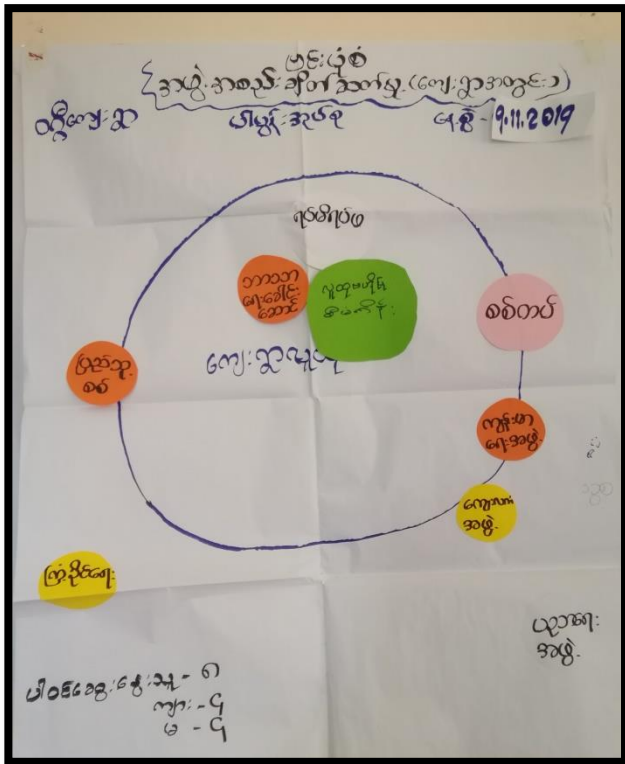 ဗင်းပုံစံ
(အဖွဲ့အစည်းချိတ်ဆက်မှု (ကျေးရွာအတွင်း)
ကျေးရွာ
နေ့စွဲ - 9.11.2019
ရပ်မိရပ်ဖ
ဘာသာ
ရေးခေါင်း
ဆောင်
လူထုဗဟိုပြု
စီမံကိန်း
စစ်တပ်
ပြည်သူ့
စစ်
ကျေးရွာလူထု
ကျန်းမာ
ရေးအဖွဲ့
အဖွဲ့
ကြံ့ခိုင်ရေး
ပညာရေး
အဖွဲ့
ပါဝင်ဆွေးနွေးသူ - ၈
ကျား - ၄
မ - ၄